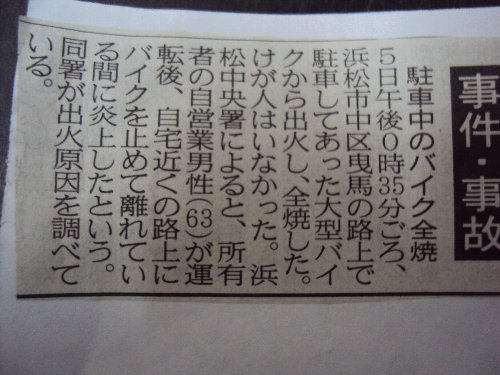 事件・事故
駐車中のバイク全焼
5日午後0時35分ごろ、
浜松市中区曳馬の路上で
駐車してあった大型バイ
クから出火し、全焼した。
けが人はいなかった。浜
松中央署によると、所有
者の自営業男性(63)が運
転後、自宅近くの路上に
バイクを止めて離れてい
る間に炎上したという。
同署が出火原因を調べて
いる。